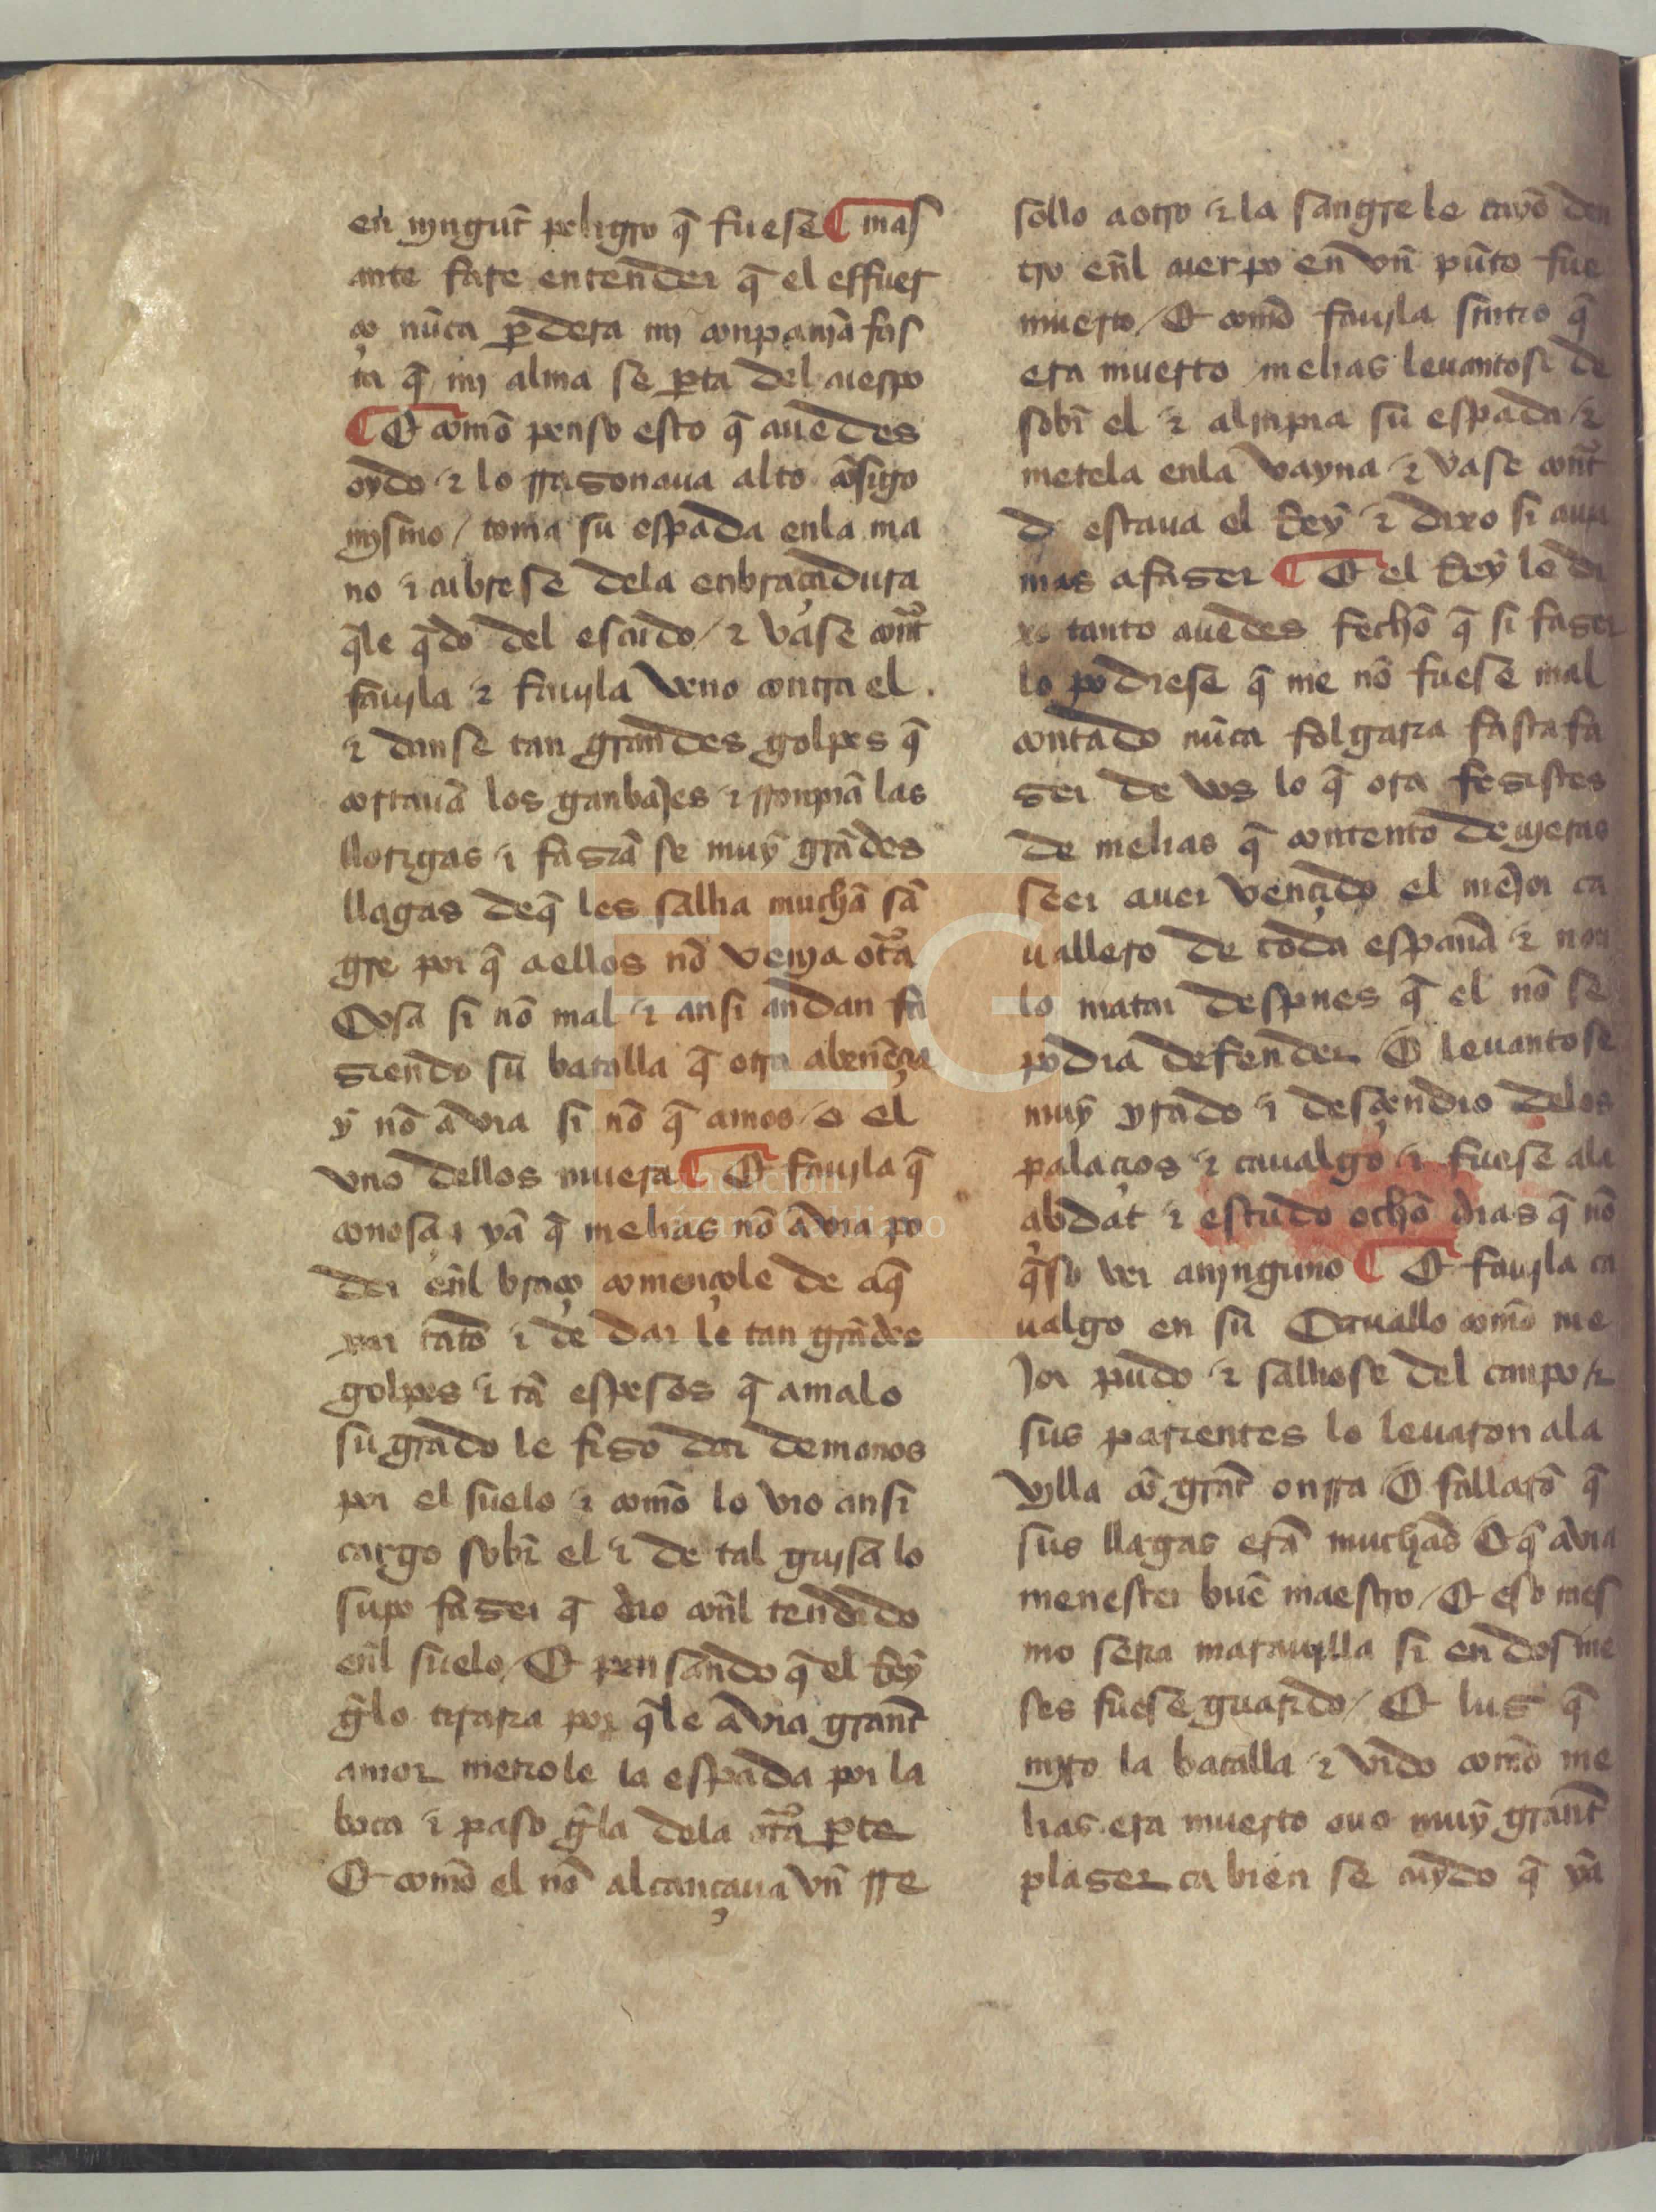 en njngũt peligro q̃ fuese ¶ mas
ante fare entender q̃ el effuer
ço nũca ꝑdera mj conpanjã fas
ta q̃ mj alma se ꝑta del cuerpo
¶ Et comõ penso esto q̃ auedes
oydo ⁊ lo rrasonaua alto cõsigo
mjsmo / toma su espada enla ma
no ⁊ cubrese dela enbraçadura
q̃le q̃do del escudo / ⁊ vase cont̃
fauјla ⁊ fauјla veno contra el .
⁊ danse tan grandes golpes q̃
cortauã los ganbajes ⁊ rronpiã las
llorigas ⁊ fasiã se muỹ grãdes
llagas deq̃ les salia muchã sã
gre por q̃ aellos nõ venja ot̃a
Cosa si nõ mal ⁊ ansi andan fa
siendo sũ batalla q̃ otra abenẽçia
ỹ nõ avia si nõ q̃ amos / o el
vno dellos muera ¶ Et fauјla q̃
conosçia yã q̃ melias nõ avia po
der ẽnl braço començole de aq̃
xar tãto ⁊ de dar le tan grãdes
golpes ⁊ tã espesos q̃ amalo
su grado le fiso dar demanos
por el suelo ⁊ comõ lo vio ansi
cargo sobr̃ el ⁊ de tal guјsa lo
supo faser q̃ dio coñl tendido
ẽnl suelo / Et pensando q̃ el Reỹ
g̃lo tiraria por q̃le avia grant̃
amor metiole la espada por la
boca ⁊ paso g̃la dela ot̃a ꝑte
Et comõ el nõ alcançaua vñ rre
sollo aotro ⁊ la sangre le cayõ den
tro eñl cuerpo en vñ pũto fue
muerto / Et comõ fauјla sintio q̃
era muerto melias leuantose de
sobr̃ el ⁊ alinpia sũ espada / ⁊
metela enla vayna ⁊ vase cont̃
d estaua el Reỹ ⁊ dixo si auia
mas afaser ¶ Et el Reỹ lo di
xo tanto auedes fechõ q̃ si faser
lo podiese q̃ me nõ fuese mal
contado nũca folgaria fasta fa
ser de vos lo q̃ ora fesistes
de melias q̃ contento deujeras
seer auer vençido el mẽjor ca
uallero de toda espanã ⁊ non
lo matar despues q̃ el nõ se
podia defender Et leuantose
muỹ yrado ⁊ desçendio delos
palaçios ⁊ caualgo ⁊ fuese ala
abdat ⁊ estudo ochõ dias q̃ nõ
q̃so ver anjnguno ¶ Et fauјla ca
ualgo en sũ Cauallo comõ me
jor pudo ⁊ saliose del canpo / ⁊
sus parientes lo leuaron ala
vjlla cõ grant̃ onrra Et fallarõ q̃
sus llagas erã muchas Et q̃ avia
menester buẽ maestro / Et eso mes
mo sera marauјlla si en dos me
ses fuese guarido / Et lus q̃
mjro la batalla ⁊ vido comõ me
lias era muerto ouo muỹ grant̃
plaser ca bien se cuydo q̃ yã